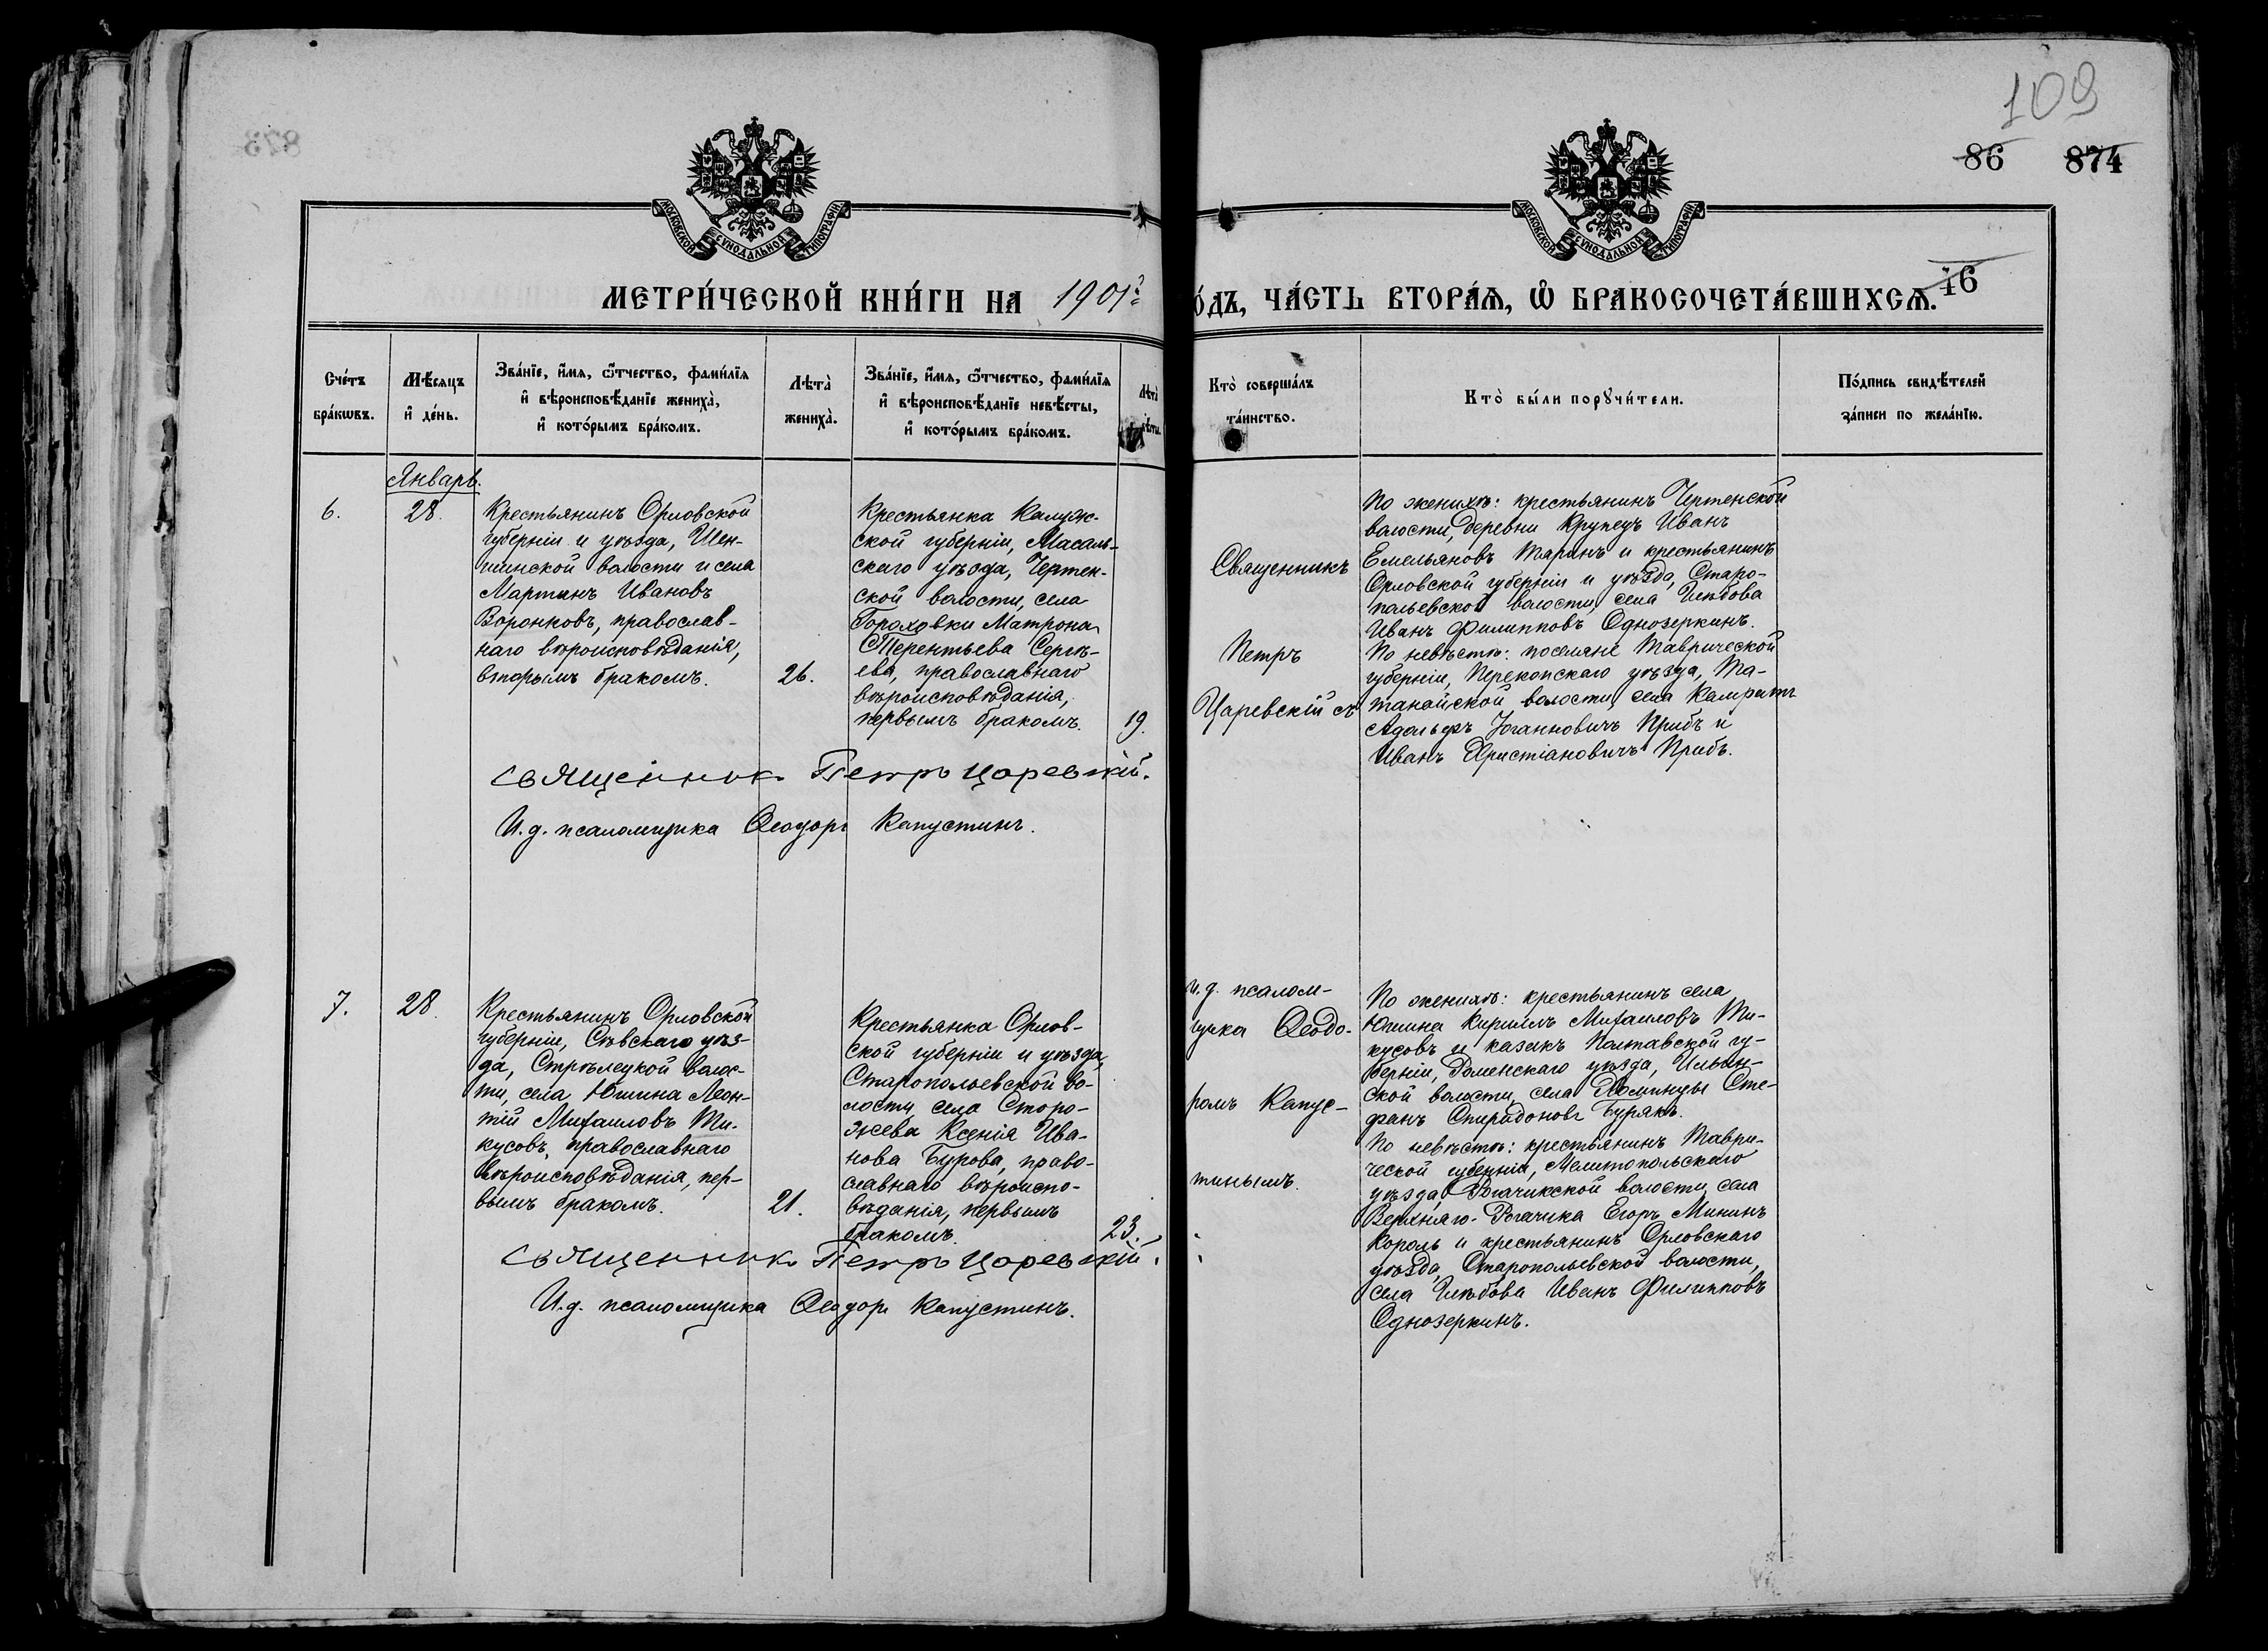 109
86 874
873
МОСКОВСКОЙ СУНОДАЛЬНОЙ ТИПОГРАФІИ
МОСКОВСКОЙ СУНОДАЛЬНОЙ ТИПОГРАФІИ
МЕТРИ́ЧЕСКОЙ КНИ́ГИ НА 1901 г.
О́ДЪ, ЧА́СТЬ ВТОРА́Ѧ, Ѡ҆ БРАКОСОЧЕТА́ВШИХСѦ.
46
Сче́тъ
бра́кѡвъ.
Мѣ́сяцъ
и҆ де́нь.
Зва́нїе, и҆́мѧ, ѻ҆́тчество, фами́лїѧ
и҆ вѣроисповѣ́данїе жениха̀,
и҆ кото́рымъ бра́комъ.
Лѣта̀
жениха̀.
Зва́нїе, и҆́мѧ, ѻ҆́тчество, фами́лїѧ
и҆ вѣроисповѣ́данїе невѣ́сты,
и҆ кото́рымъ бра́комъ.
Лѣта̀
Кто̀ соверша́лъ
та́инство.
Кто̀ бы́ли порꙋчи́тели.
По́дпись свидѣ́телей
за́писи по жела́нїю.
Январь.
6.
28.
Крестьянинъ Орловской
губерніи и уѣзда, Шен-
шинской волости и села
Мартинъ Ивановъ
Воронковъ, православ-
наго вѣроисповѣданія,
вторымъ бракомъ.
26.
Крестьянка Калуж-
ской губерніи, Масаль-
скаго уѣзда, Чертен-
ской волости, села
Гороховки Матрона
Терентьева Сергѣ-
ева, православнаго
вѣроисповѣданія,
первымъ бракомъ.
19.
Священникъ
Петръ
Царевскій съ
По женихѣ: крестьянинъ Чертенской
волости, деревни Крупецъ Иванъ
Емельяновъ Таринъ и крестьянинъ
Орловской губерніи и уѣзда, Старо-
польевской волости, села Глѣбова
Иванъ Филипповъ Однозеркинъ.
По невѣстѣ: поселяне Таврической
губерніи, Перекопскаго уѣзда, Та-
танайской волости, села
Адольфъ Іоганновичъ Прибъ и
Иванъ Христіановичъ Прибъ.
Священникъ Петръ Царевскій.
И.д. псаломщика Ѳеодоръ Капустинъ.
7.
28.
Крестьянинъ Орловской
губерніи, Сѣвскаго уѣз-
да, Стрѣлецкой волос-
ти, села Юшина Леон-
тій Михаиловъ Ти-
кусовъ, православнаго
вѣроисповѣданія, пер-
вымъ бракомъ.
21.
Крестьянка Орлов-
ской губерніи и уѣзда,
Старопольевской во-
лости, села Сторо-
жева Ксенія Ива-
нова Бурова, право-
славнаго вѣроиспо-
вѣданія, первымъ
бракомъ.
23.
и.д. псалом-
щика Ѳеодо-
ромъ Капус-
тинымъ.
По женихѣ: крестьянинъ села
Юшина Кириллъ Михаиловъ Ти-
кусовъ и казакъ Полтавской гу-
берніи, Роменскаго уѣзда,
ской волости, села Сте-
фанъ Спиридоновъ Бурякъ.
По невѣстѣ: крестьянинъ Таври-
ческой губерніи, Мелитопольскаго
уѣзда, Рогачикской волости, села
Верхняго-Рогачика Егоръ Мининъ
Король и крестьянинъ Орловскаго
уѣзда, Старопольевской волости,
села Глѣбова Иванъ Филипповъ
Однозеркинъ.
Священникъ Петръ Царевскій.
И.д. псаломщика Ѳеодоръ Капустинъ.